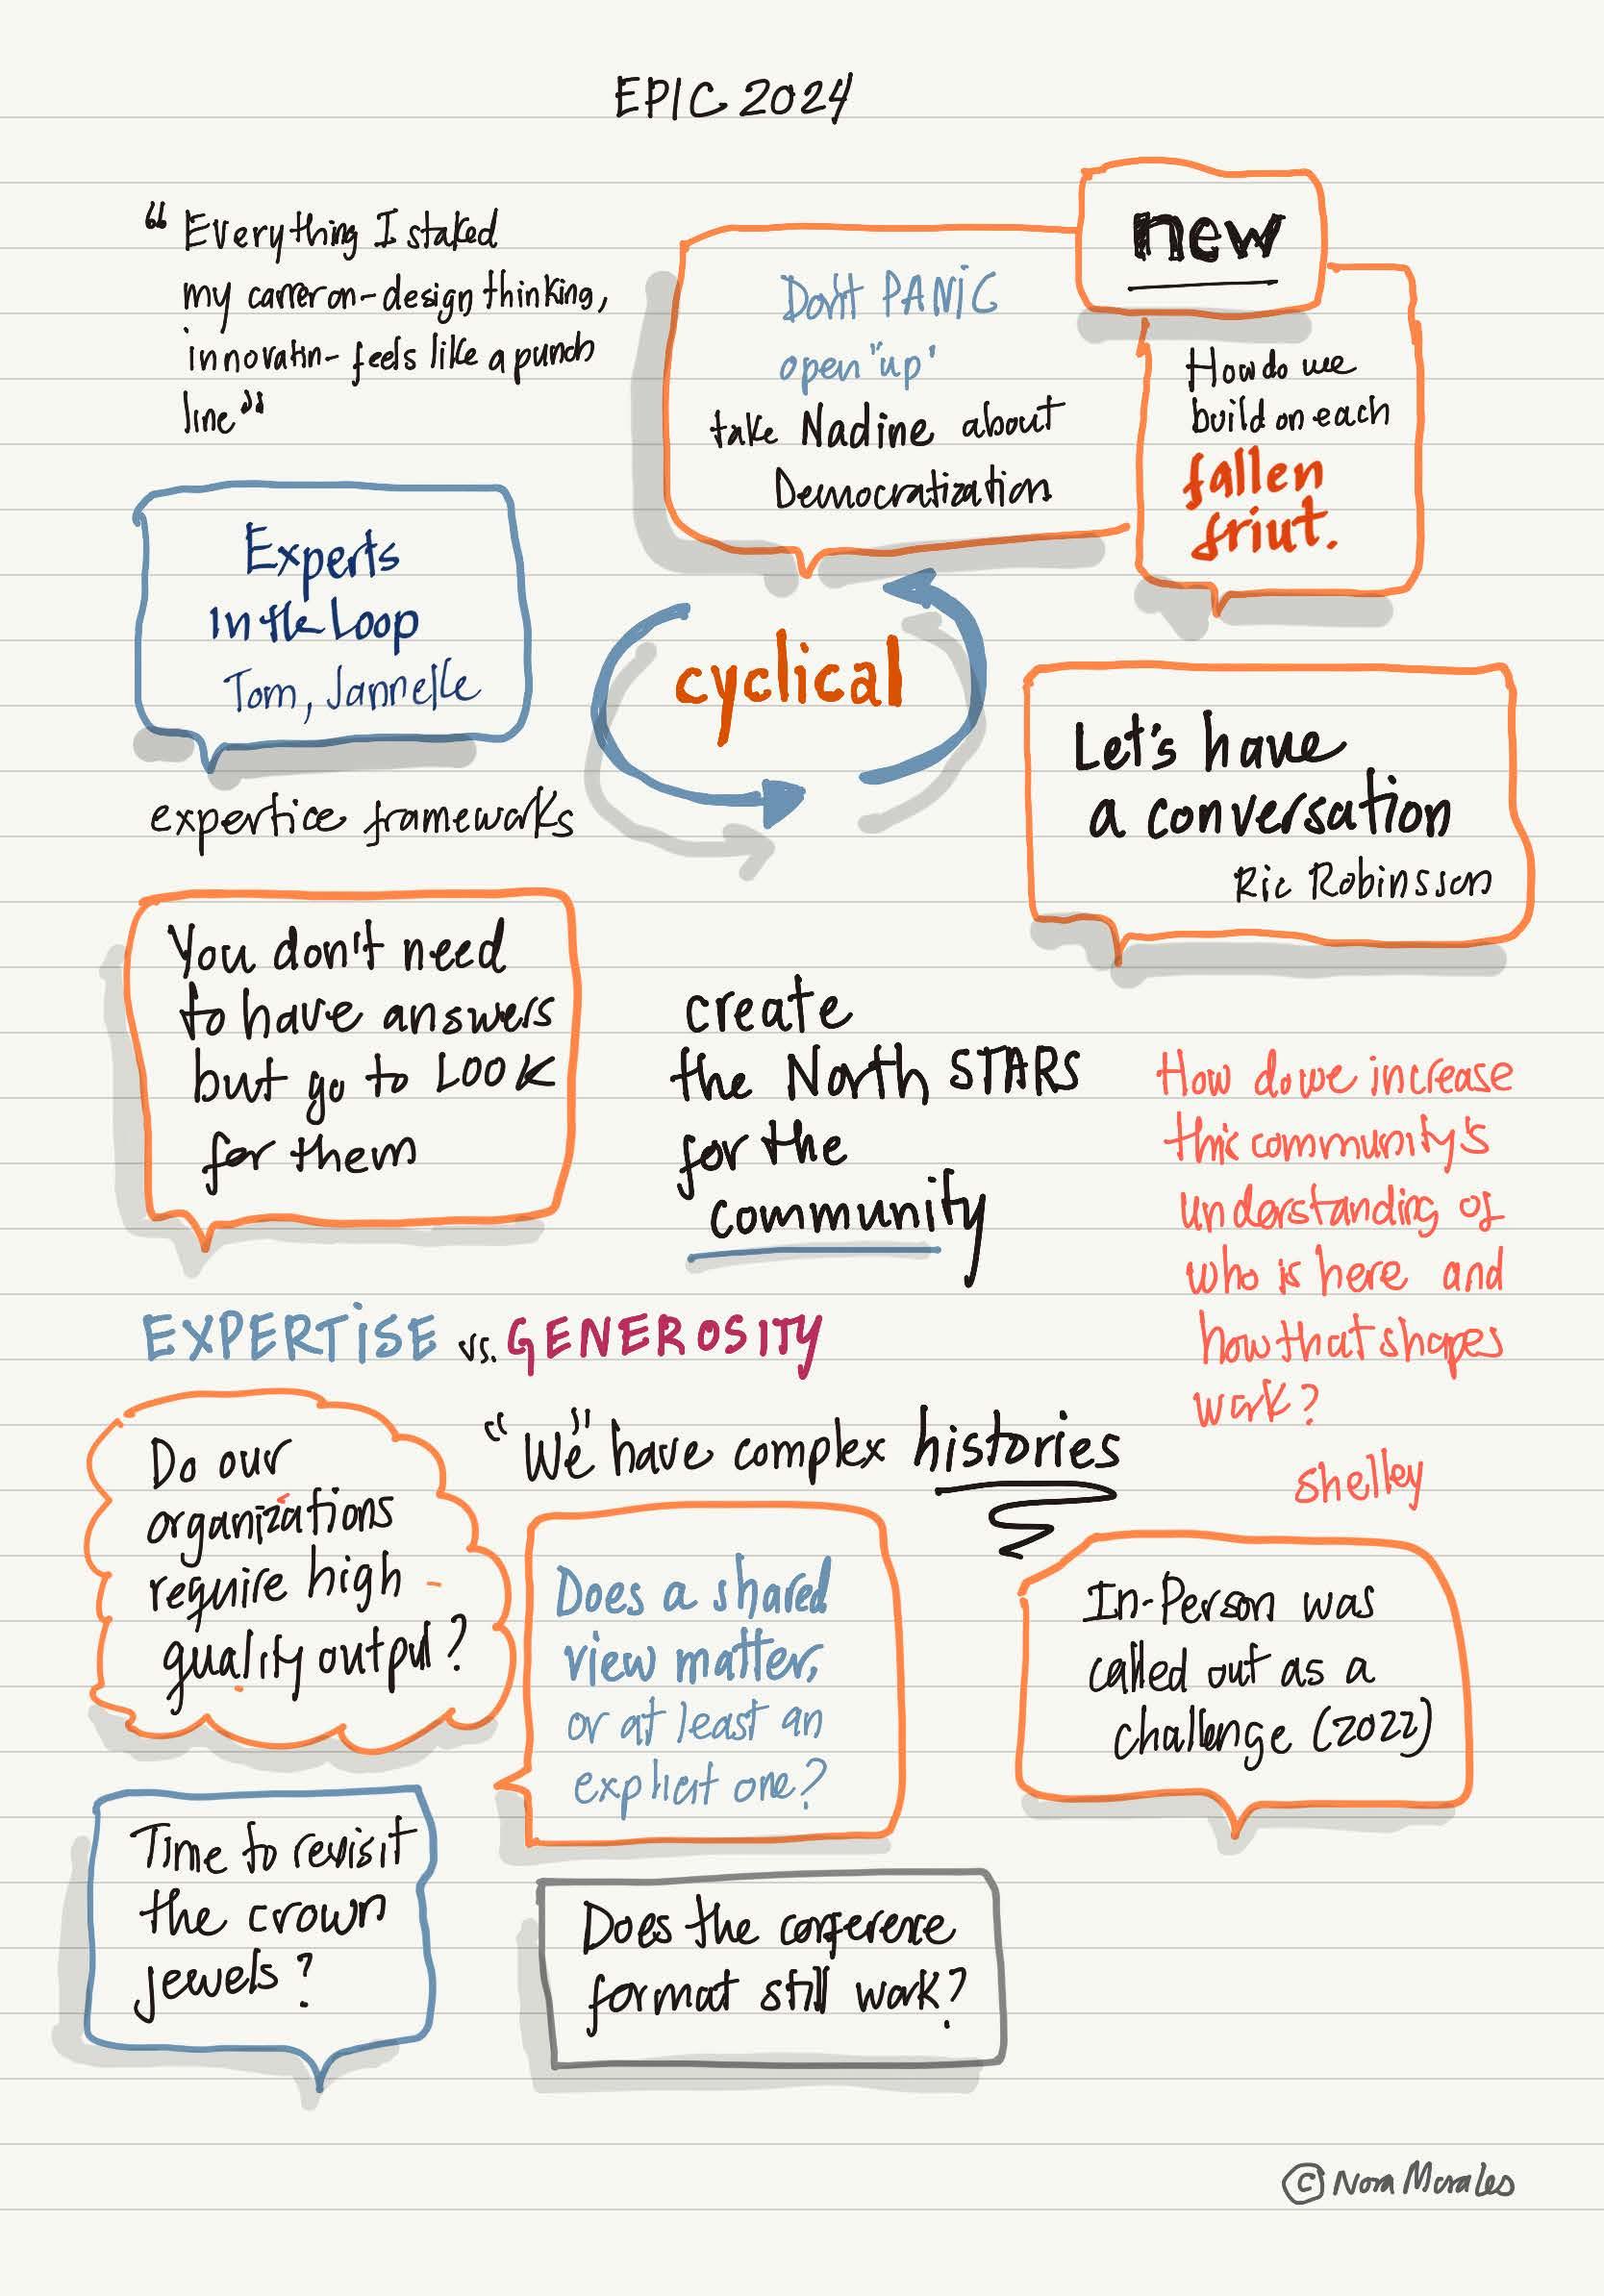 EPIC 2024
“Everything I staked
my carreron-design thinking,
innovatin- feels like a punch
line”
new
Don't PANIC
open "up"
take Nadine about
Democratization
How do we
build on each
fallen
friut.
Experts
In the Loop
Tom, Jannelle
cyclical
expertice frameworks
Let's have
a conversation
Ric Robinsson
You don't need
to have answers
but go to LOOK
for them
create
the North STARS
for the
community
How do we increase
this community's
understanding of
who is here and
how that shapes
work?
Shelley
EXPERTISE vs. GENEROSITY
"We" have complex histories
Do our
organizations
require high
quality output?
Does a shared
view matter,
or at least an
explicit one?
In-Person was
called out as a
challenge (2022)
Time to revisit
the crown
jewels?
Does the conference
format still work?
© Nora Morales